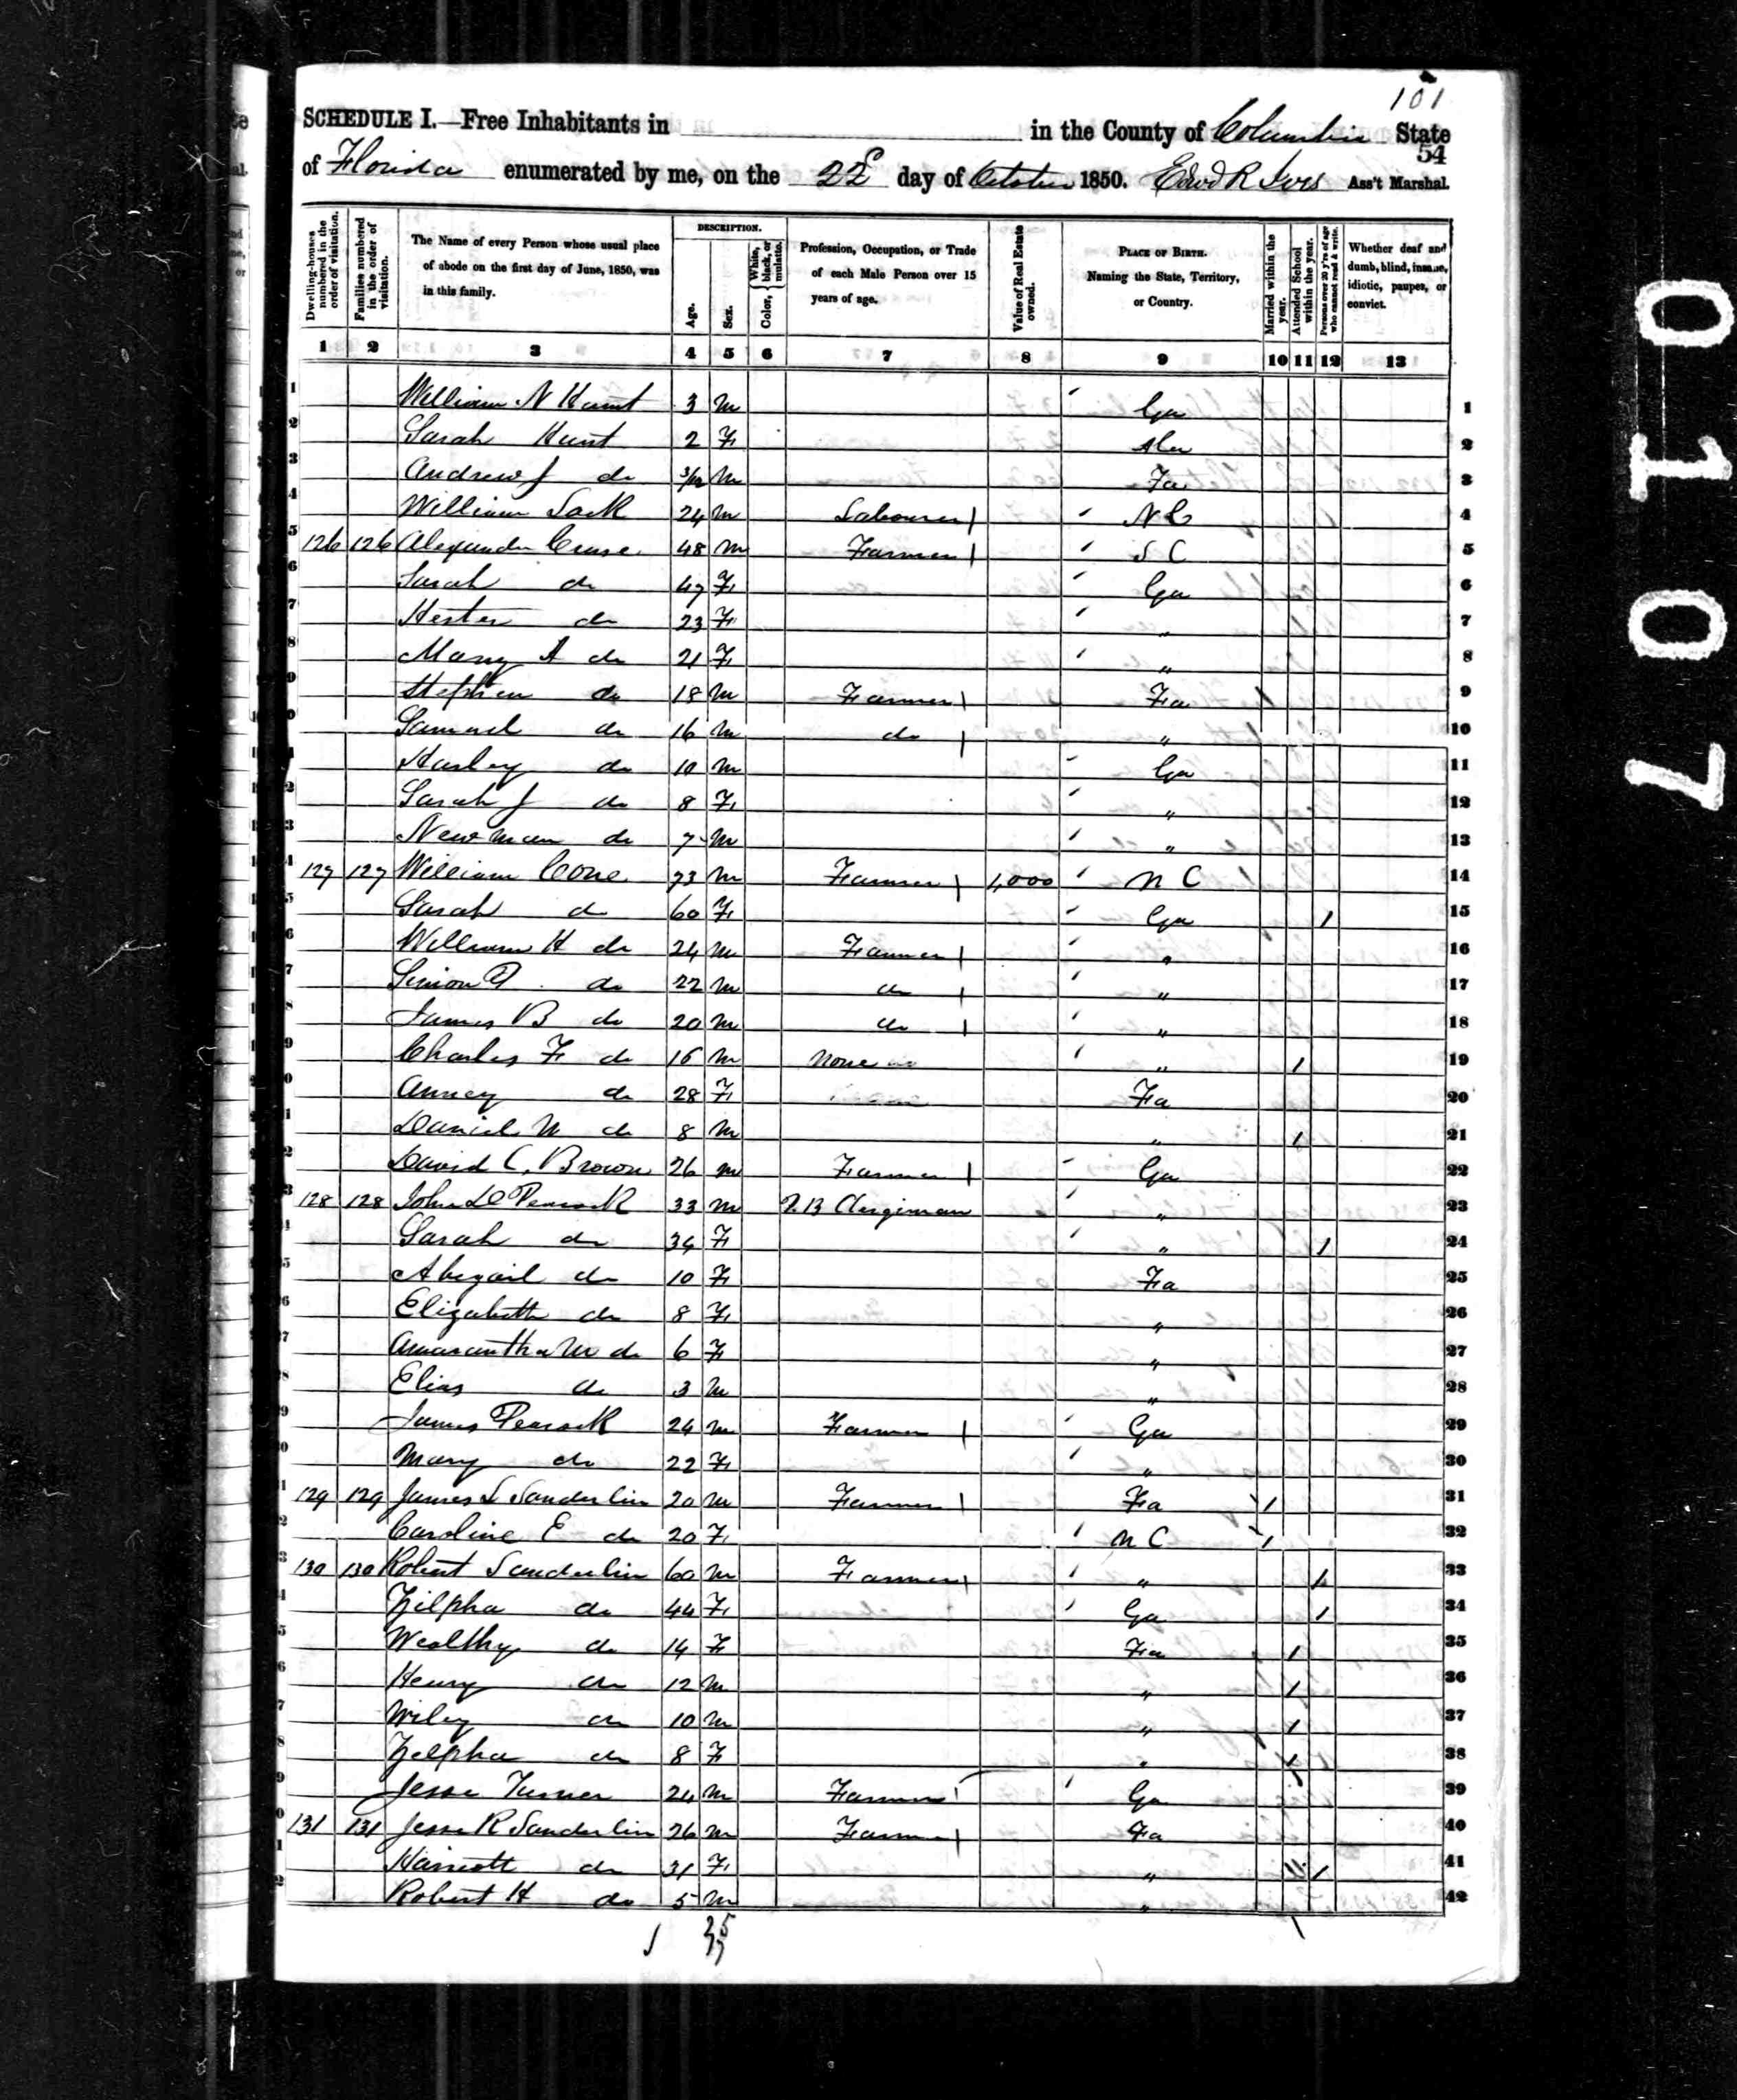 101
SCHEDULE I.—Free Inhabitants in in the County of Columbia State
54
of Florida enumerated by me, on the 22d day of October 1850. Edwd R Ives Ass't Marshal.
Dwelling-houses numbered in the order of visitation.
Families numbered in the order of visitation.
The Name of every Person whose usual place of abode on the first day of June, 1850, was in this family.
DESCRIPTION.
Age.
Sex.
Color, { White, black, or mulatto.
Profession, Occupation, or Trade of each Male Person over 15 years of age.
Value of Real Estate owned.
PLACE OF BIRTH. Naming the State, Territory, or Country.
Married within the year.
Attended School within the year.
Persons over 20 y'rs of age who cannot read & write.
Whether deaf and dumb, blind, insane, idiotic, pauper, or convict.
1 2 3 4 5 6 7 8 9 10 11 12 13
1 William N Hunt 3 M Ga 1
2 Sarah Hunt 2 F Ala 2
3 Andrew J do 3/12 M Fa 3
4 William Sack 24 M Labourer N C 4
5 126 126 Alexander Cruse 48 M Farmer S C 5
6 Sarah do 47 F Ga 6
7 Hester do 23 F " 7
8 Mary A do 21 F " 8
9 Stephen do 18 M Farmer Fa 9
0 Samuel do 16 M do " 10
1 Harley do 10 M Ga 11
2 Sarah J do 8 F " 12
3 Newman do 7 M " 13
4 127 127 William Cone 73 M Farmer 4,000 N C 14
5 Sarah do 60 F Ga 1 15
6 William H do 24 M Farmer " 16
7 Simon P do 22 M do " 17
8 James B do 20 M do " 18
9 Charles F do 16 M None " 1 19
0 Anney do 28 F Fa 20
1 Daniel N do 8 M " 1 21
2 David C. Brown 26 M Farmer Ga 22
3 128 128 John D Peacock 33 M P. B Clergiman " 23
4 Sarah do 34 F " 1 24
5 Abegail do 10 F Fa 25
6 Elizabeth do 8 F " 26
7 Amarantha M do 6 F " 27
8 Elias do 3 M " 28
9 James Peacock 24 M Farmer Ga 29
0 Mary do 22 F " 30
1 129 129 James S Sanderlin 20 M Farmer Fa 1 31
2 Caroline E do 20 F N C 1 32
3 130 130 Robert Sanderlin 60 M Farmer " 1 33
4 Zilpha do 44 F Ga 1 34
5 Wealthy do 14 F Fa 1 35
6 Henry do 12 M " 1 36
7 Wiley do 10 M " 1 37
8 Zilpha do 8 F " 1 38
9 Jesse Turner 24 M Farmer Ga 39
0 131 131 Jesse R Sanderlin 26 M Farmer Fa 40
1 Harriett do 31 F " 1 41
2 Robert H do 5 M " 42
0107